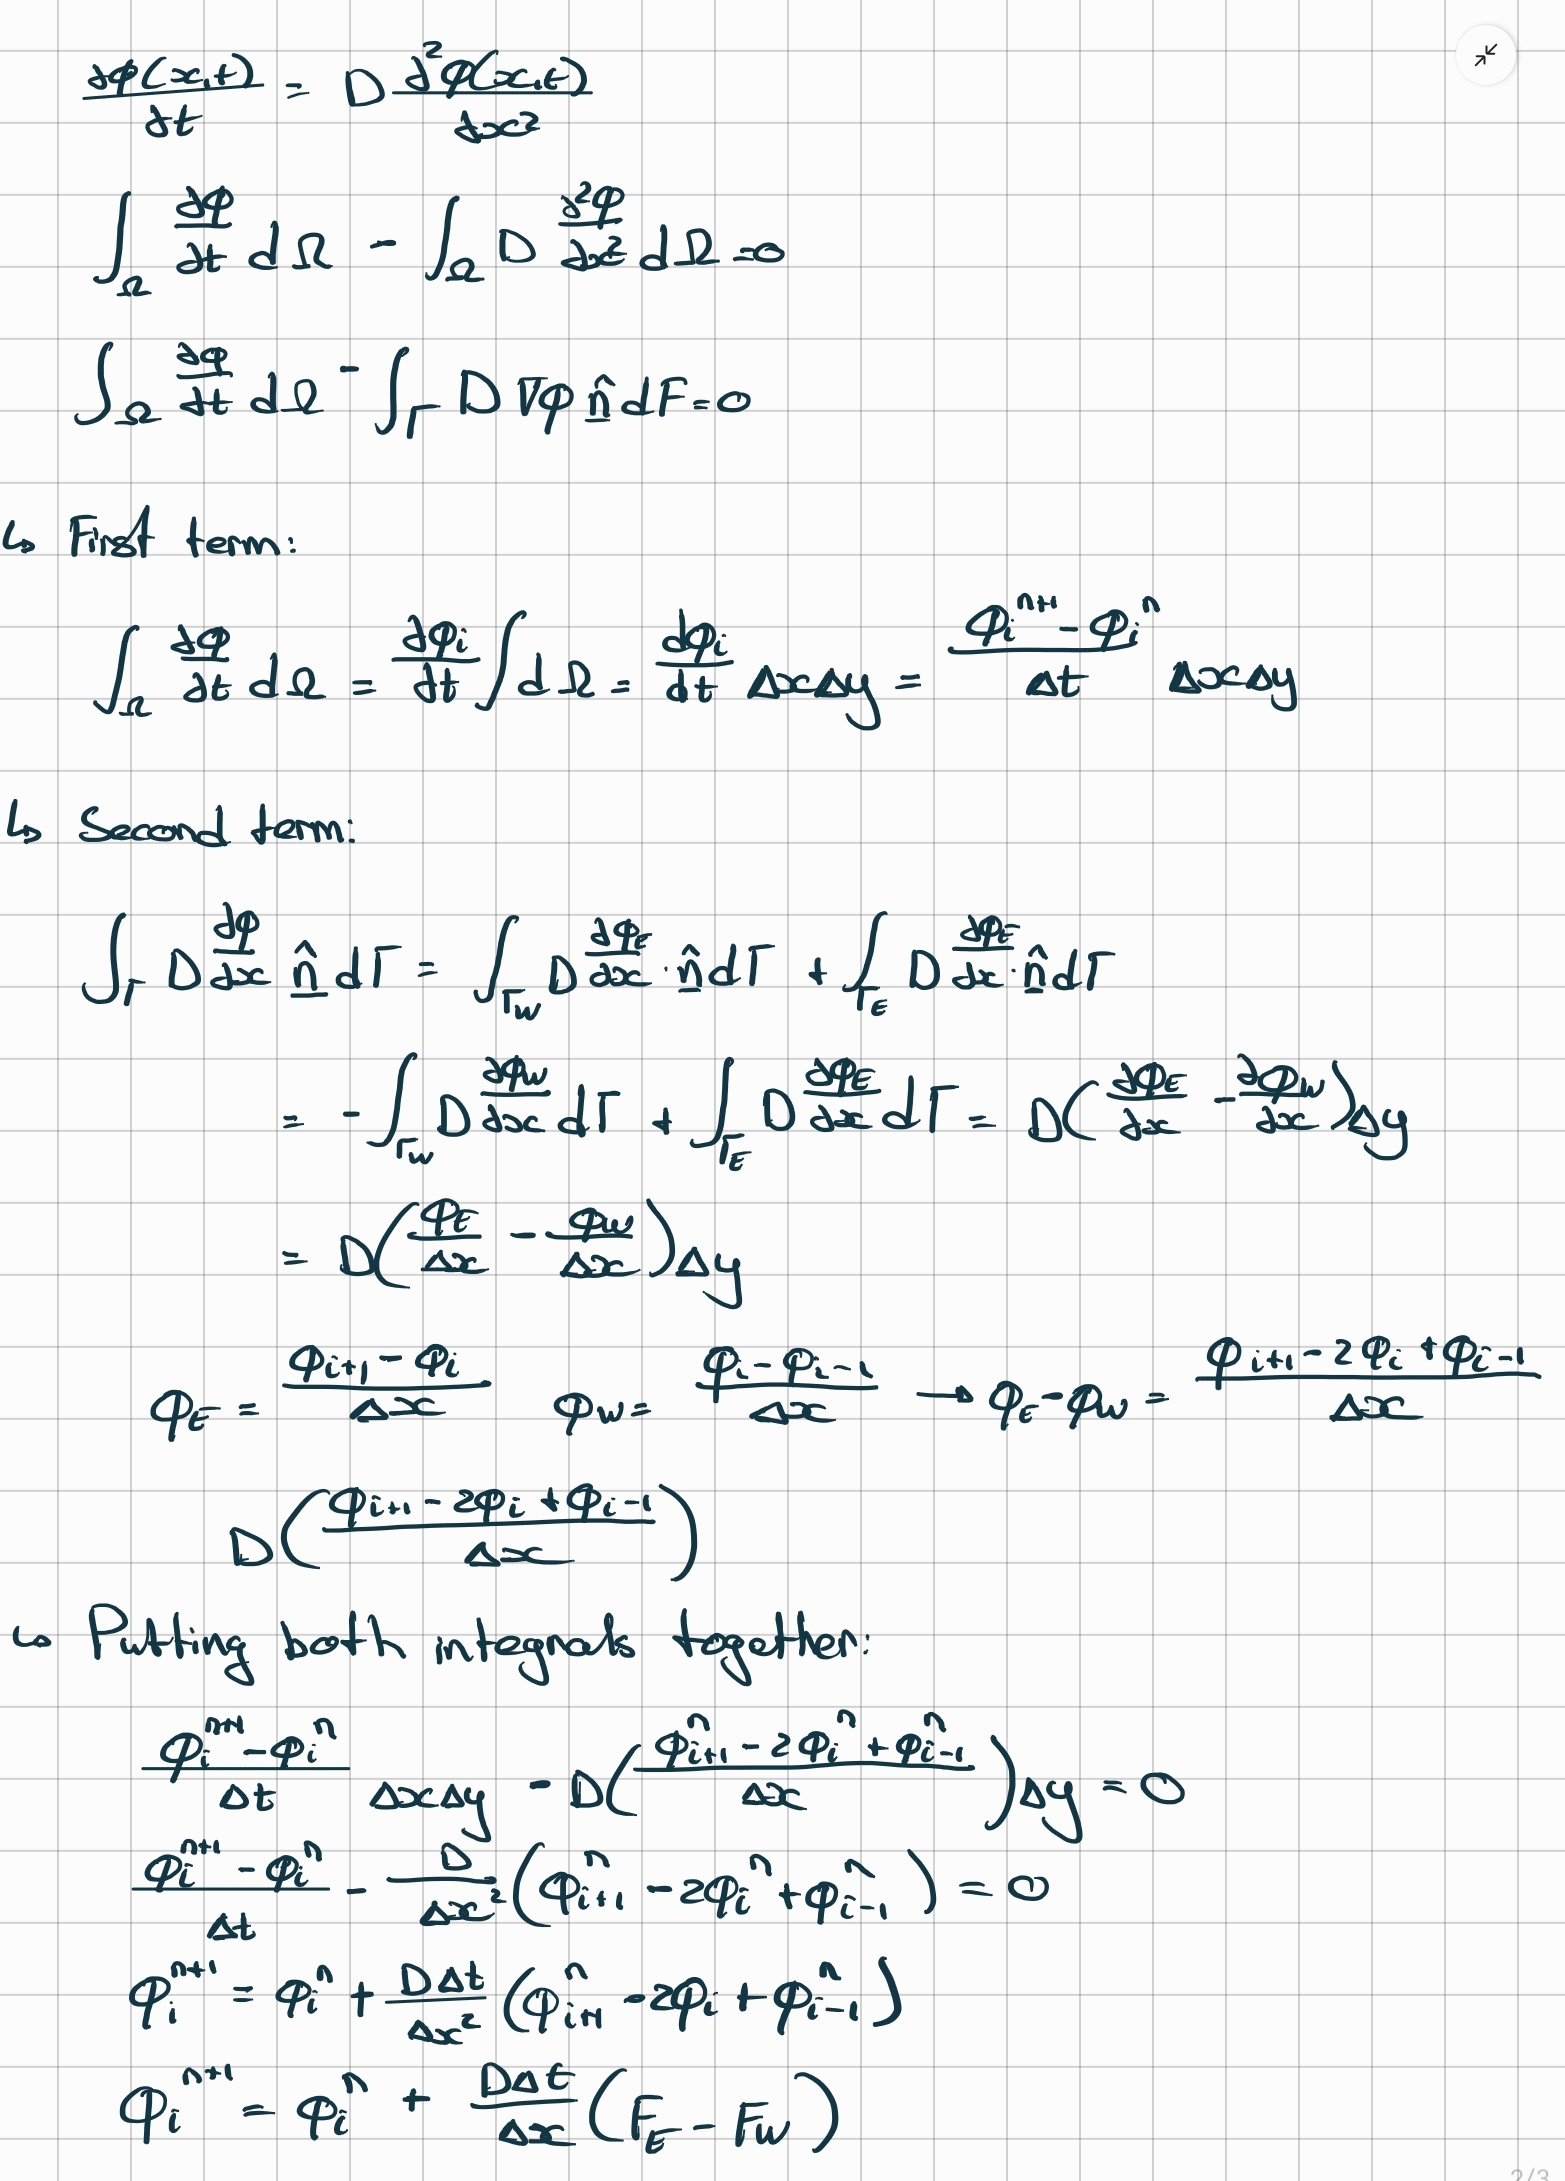 ∂φ(x,t)/∂t = D ∂²φ(x,t)/∂x²
∫_Ω ∂φ/∂t dΩ - ∫_Ω D ∂²φ/∂x² dΩ = 0
∫_Ω ∂φ/∂t dΩ - ∫_Γ D ∇φ n̂ dF = 0
↳ First term:
∫_Ω ∂φ/∂t dΩ = ∂φ_i/∂t ∫ dΩ = dφ_i/dt ΔxΔy = (φ_i^{n+1} - φ_i^n)/Δt ΔxΔy
↳ Second term:
∫_Γ D ∂φ/∂x n̂ dΓ = ∫_{Γ_W} D ∂φ_E/∂x · n̂ dΓ + ∫_{Γ_E} D ∂φ_E/∂x · n̂ dΓ
= - ∫_{Γ_W} D ∂φ_W/∂x dΓ + ∫_{Γ_E} D ∂φ_E/∂x dΓ = D(∂φ_E/∂x - ∂φ_W/∂x)Δy
= D(φ_E/Δx - φ_W/Δx)Δy
φ_E = (φ_{i+1} - φ_i)/Δx φ_W = (φ_i - φ_{i-1})/Δx → φ_E - φ_W = (φ_{i+1} - 2φ_i + φ_{i-1})/Δx
D((φ_{i+1} - 2φ_i + φ_{i-1})/Δx)
↳ Putting both integrals together:
(φ_i^{n+1} - φ_i^n)/Δt ΔxΔy - D((φ_{i+1}^n - 2φ_i^n + φ_{i-1}^n)/Δx)Δy = 0
(φ_i^{n+1} - φ_i^n)/Δt - D/Δx² (φ_{i+1}^n - 2φ_i^n + φ_{i-1}^n) = 0
φ_i^{n+1} = φ_i^n + DΔt/Δx² (φ_{i+1}^n - 2φ_i + φ_{i-1}^n)
φ_i^{n+1} = φ_i^n + DΔt/Δx (F_E - F_W)
2/3